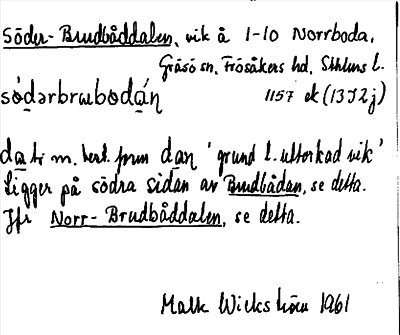 Söder-Brudbåddalen, vik å 1-10 Norrboda,
Gräsö sn, Frösåkers hd, Sthlms l.
sö́dərbrwbodán 1157 ek (13J2j)
da tr m. best. form dan 'grund l. uttorkad vik'
Ligger på södra sidan av Brudbådan, se detta.
Jfr Norr-Brudbåddalen, se detta.
Maik Wickström 1961